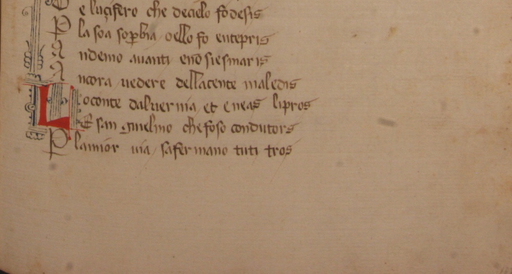 e lucifero che decielo fo desis
la soa sopbia oello fo entepris
ndemo auanti eno siesmaris
ncora uedere dellacente maledis
Loconte daluernia et eneas lipros
E san Guielmo che foso condutors
P lamior uia safermano tuti tros